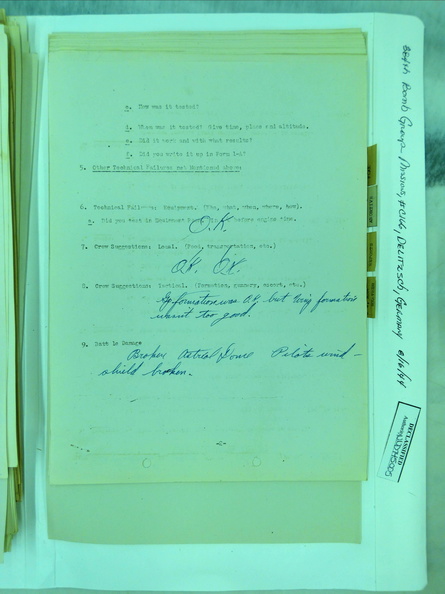 g. How was it tested?
h. When was it tested? Give time, place and altitude.
e. Did it work and with what results?
f. Did you write it up in Form 1A?
5. Other Technical Failures not Mentioned above:
6. Technical Failures: Equipment. (Who, what, when, where, how).
a. Did you turn in Equipment before engine time.
O.K.
7. Crew Suggestions: Local. (Food, transportation, etc.)
O.K. O.K.
8. Crew Suggestions: Tactical. (Formation, gunnery, escort, etc.)
Gp formation was O.K. but Wing formation
wasn't too good.
9. Battle Damage
Broken Astral Dome Pilots wind-
shield broken.
-2-
384th Bomb Group Missions, #C166, DELITZSCH, Germany 8/16/44
DECLASSIFIED
Authority